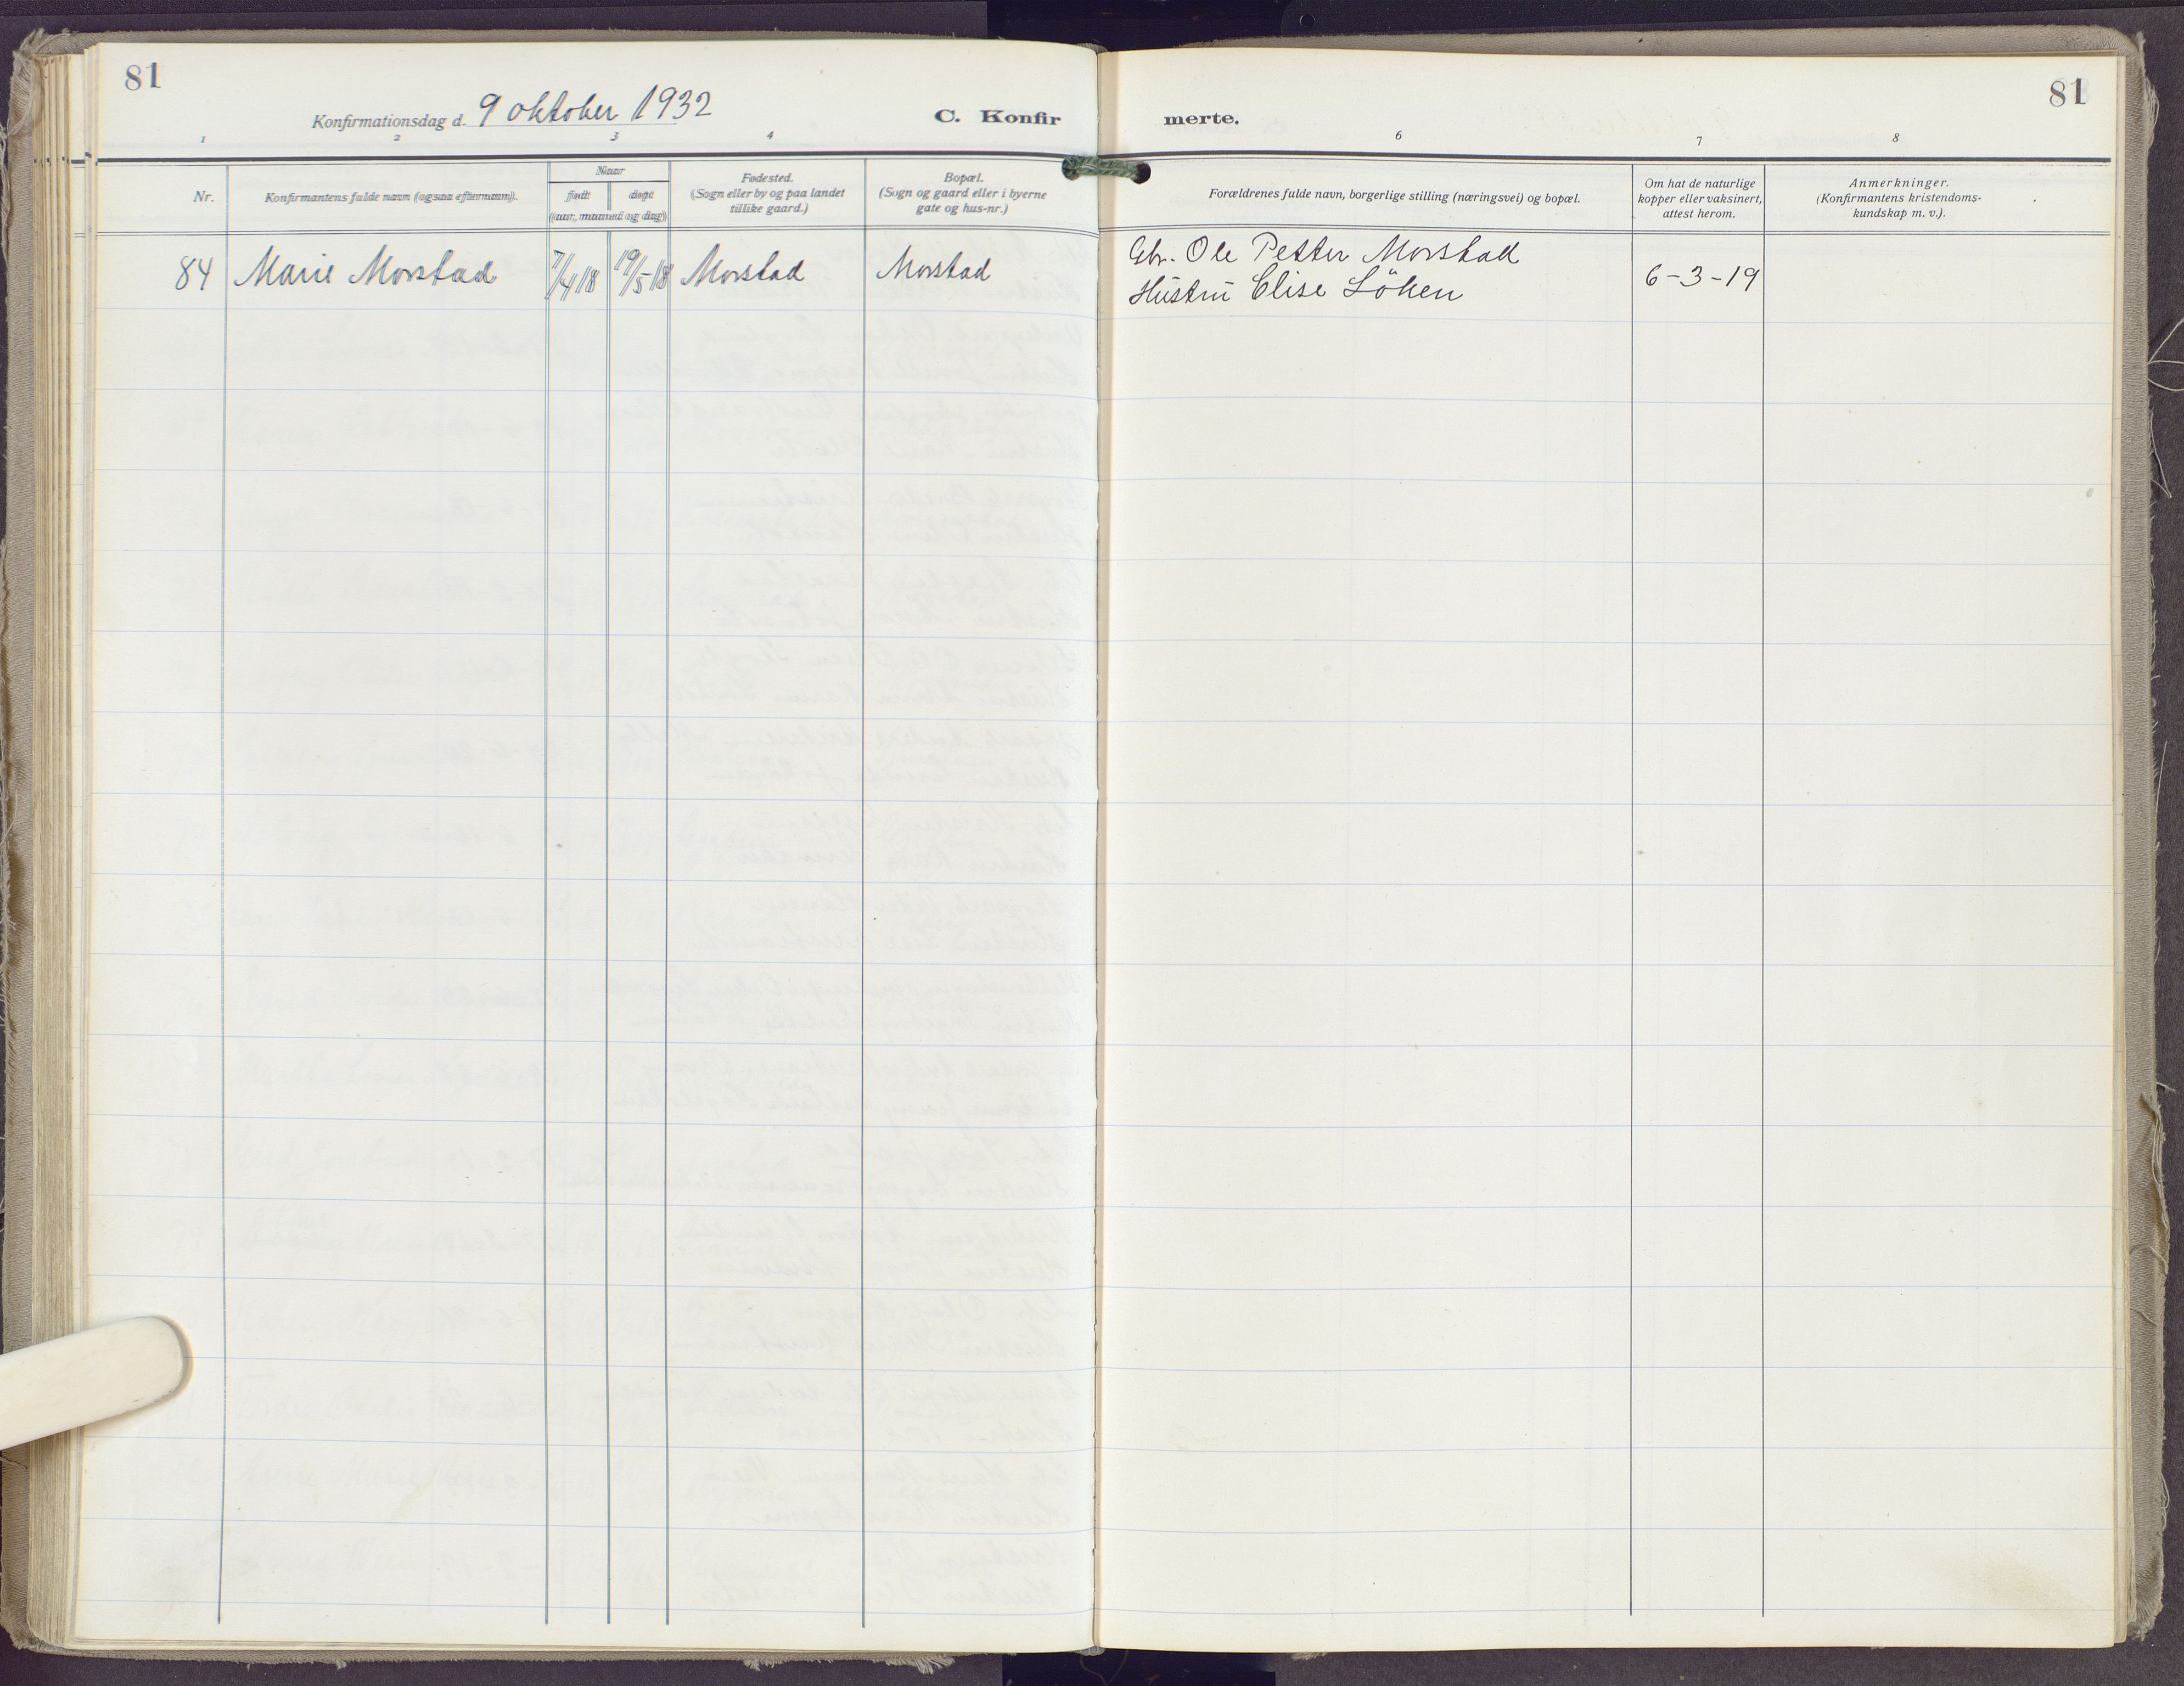 81
81
Konfirmationsdag d. 9 oktober 1932
C. Konfir
merte.
1 2 3 4 6 7 8
Nr.
Konfirmantens fulde navn (ogsaa efternavn).
Naar
født
døpt
(aar, maaned og dag)
Fødested.
(Sogn eller by og paa landet
tillike gaard.)
Bopæl.
(Sogn og gaard eller i byerne
gate og hus-nr.)
Forældrenes fulde navn, borgerlige stilling (næringsvei) og bopæl.
Om hat de naturlige
kopper eller vaksinert,
attest herom.
Anmerkninger.
(Konfirmantens kristendoms-
kundskap m. v.).
84 Marie Morstad 7/4 18 19/5-18 Morstad Morstad
Gbr. Ole Petter Morstad
Hustru Elise Löken
6-3-19